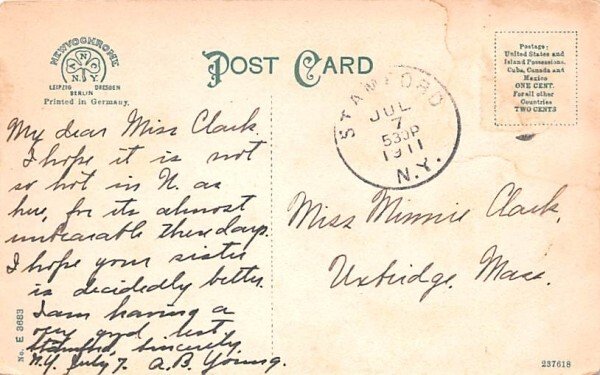 NEWVOCHROME
A N C
N.Y.
LEIPZIG DRESDEN
BERLIN
Printed in Germany.
POST CARD
Postage:
United States and
Island Possessions,
Cuba, Canada and
Mexico
ONE CENT.
For all other
Countries
TWO CENTS
STAMFORD
JUL
7
530P
1911
N.Y.
My dear Miss Clark.
I hope it is not
so hot in N. as
here, for its almost
unbearable these days.
I hope your sister
is decidedly better.
I am having a
very good rest
Stamford, sincerely
N.Y. July 7. A.B. Young.
Miss Minnie Clark,
Uxbridge, Mass.
No. E 3683
237618